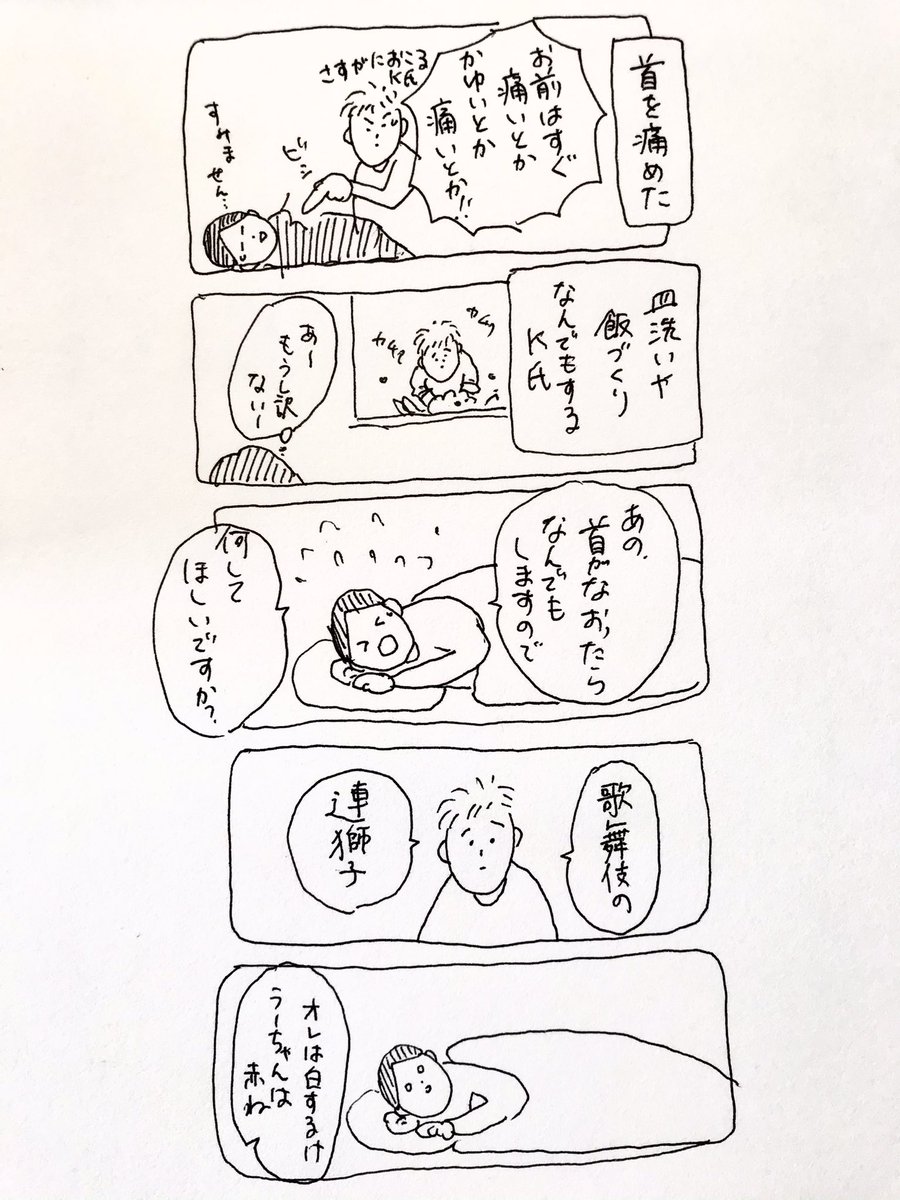 首を痛めた
お前はすぐ
痛いとか
かゆいとか
痛いとか!!
さすがにおこる
K氏
ビシ
すみま
せん…
皿洗いや
飯づくり
なんでもする
K氏
カチャ
カチャ
あー
もうし訳
ないー
あの、
首がなおったら
なんでも
しますので
何して
ほしいですか?
歌舞伎の
連獅子
オレは白するけ
うーちゃんは
赤ね